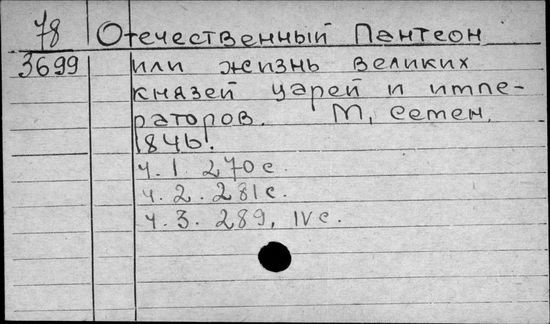 78 Отечественный Пантеон
3699 или жизнь великих
князей царей и импе-
раторов. М, Семен,
1846.
ч. 1. 270 с.
ч. 2. 281 с.
ч. 3. 289, IV с.